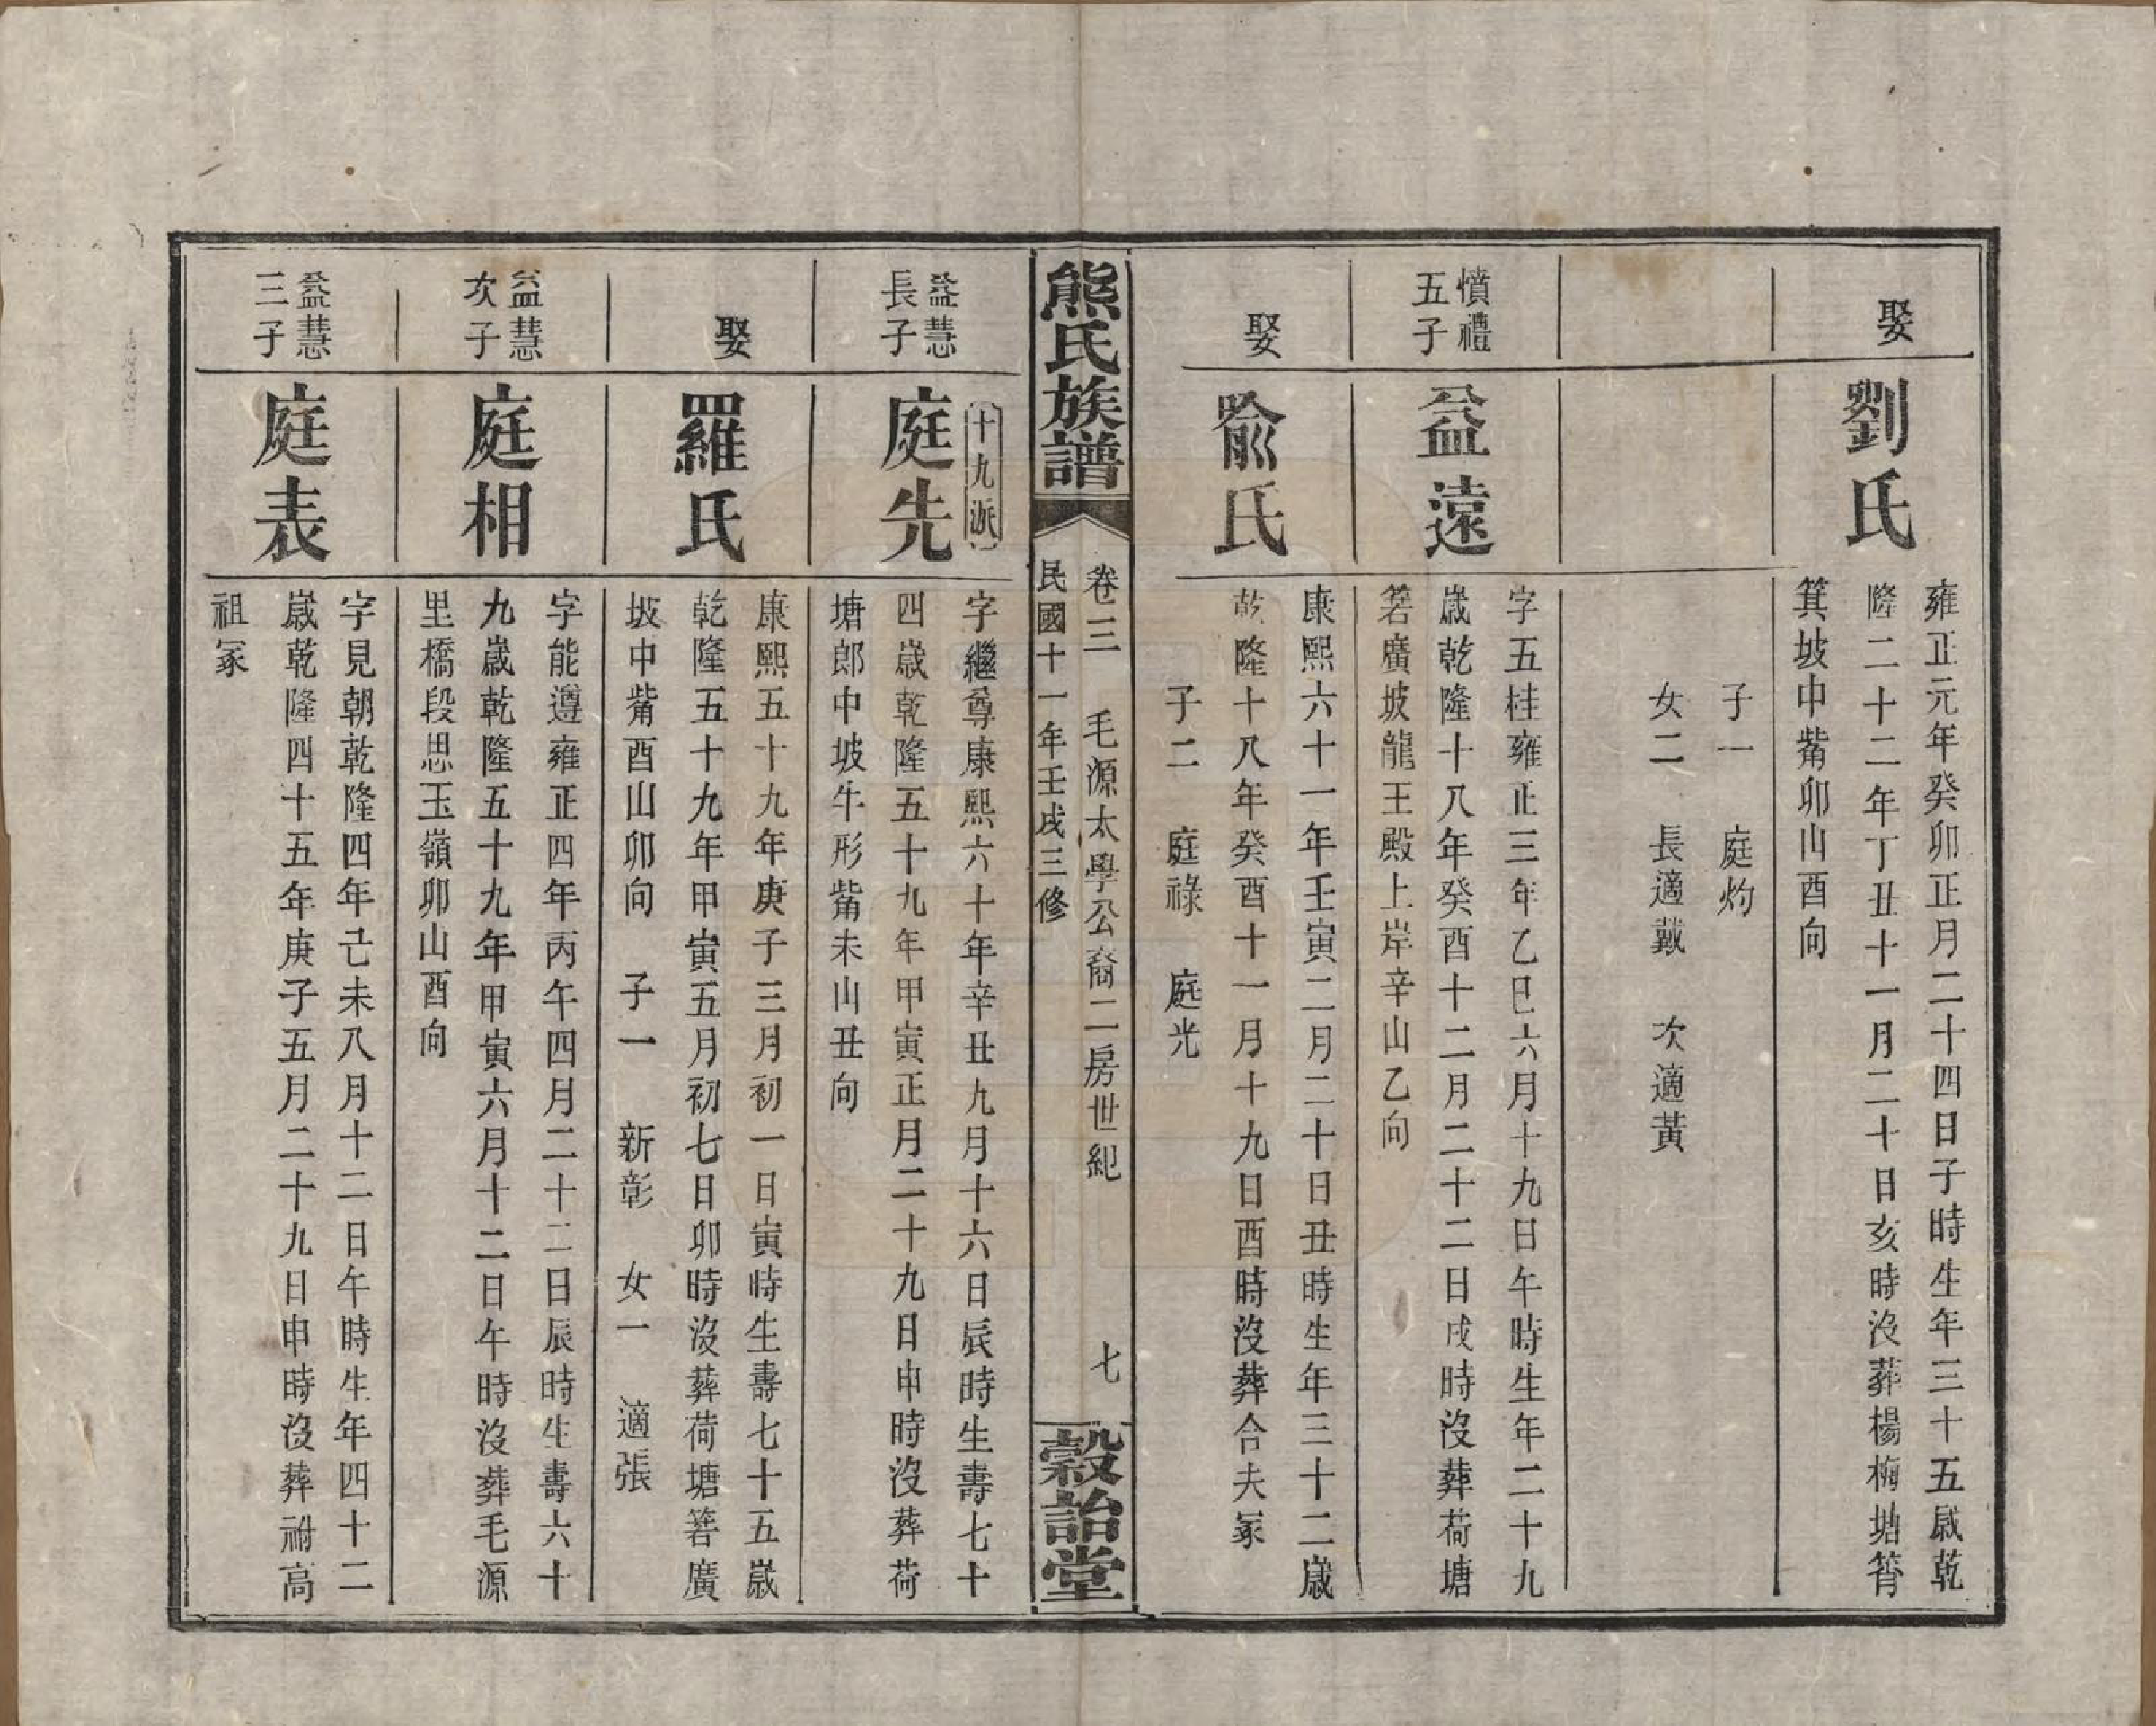 娶
劉氏
雍正元年癸卯正月二十四日子時生年三十五歲乾
隆二十二年丁丑十一月二十日亥時沒葬楊梅塘筲
箕坡中觜卯山酉向
子一　庭灼
女二　長適戴　次適黃
憤禮
五子
益遠
字五桂雍正三年乙巳六月十九日午時生年二十九
歲乾隆十八年癸酉十二月二十二日戌時沒葬荷塘
箬廣坡龍王殿上岸辛山乙向
娶
喩氏
康熙六十一年壬寅二月二十日丑時生年三十二歲
乾隆十八年癸酉十一月十九日酉時沒葬合夫冢
子二　庭祿　庭光
熊氏族譜
卷三　毛源太學公裔二房世紀　七
民國十一年壬戌三修
穀詒堂
益慧
長子
十九派
庭先
字繼尊康熙六十年辛丑九月十六日辰時生壽七十
四歲乾隆五十九年甲寅正月二十九日申時沒葬荷
塘郎中坡牛形觜未山丑向
娶
羅氏
康熙五十九年庚子三月初一日寅時生壽七十五歲
乾隆五十九年甲寅五月初七日卯時沒葬荷塘箬廣
坡中觜酉山卯向　子一　新彰　女一　適張
益慧
次子
庭相
字能遵雍正四年丙午四月二十二日辰時生壽六十
九歲乾隆五十九年甲寅六月十二日午時沒葬毛源
里橋段思玉嶺卯山酉向
益慧
三子
庭表
字見朝乾隆四年己未八月十二日午時生年四十二
歲乾隆四十五年庚子五月二十九日申時沒葬祔高
祖冢